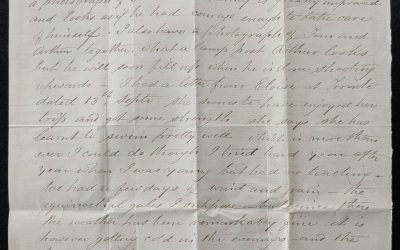 a photograph of
and looks as if he had courage enough to take care
of himself I also have a photograph of Tom and
Arthur together. what a lamp post Arthur looks
but he will soon fill up when he is done shooting
upwards - I had a letter from Eloise at Toronto
dated 13th Septr she seems to have enjoyed her
trip and got some strength she says she has
learnt to swim pretty well which is more than
ever I could do though I tried hard year after
year when I was young but had no teaching -
We had a few days of wind and rain - the
equinoctial gales I suppose but since then
the weather has been remarkably fine it is
however getting cold in the evenings and the